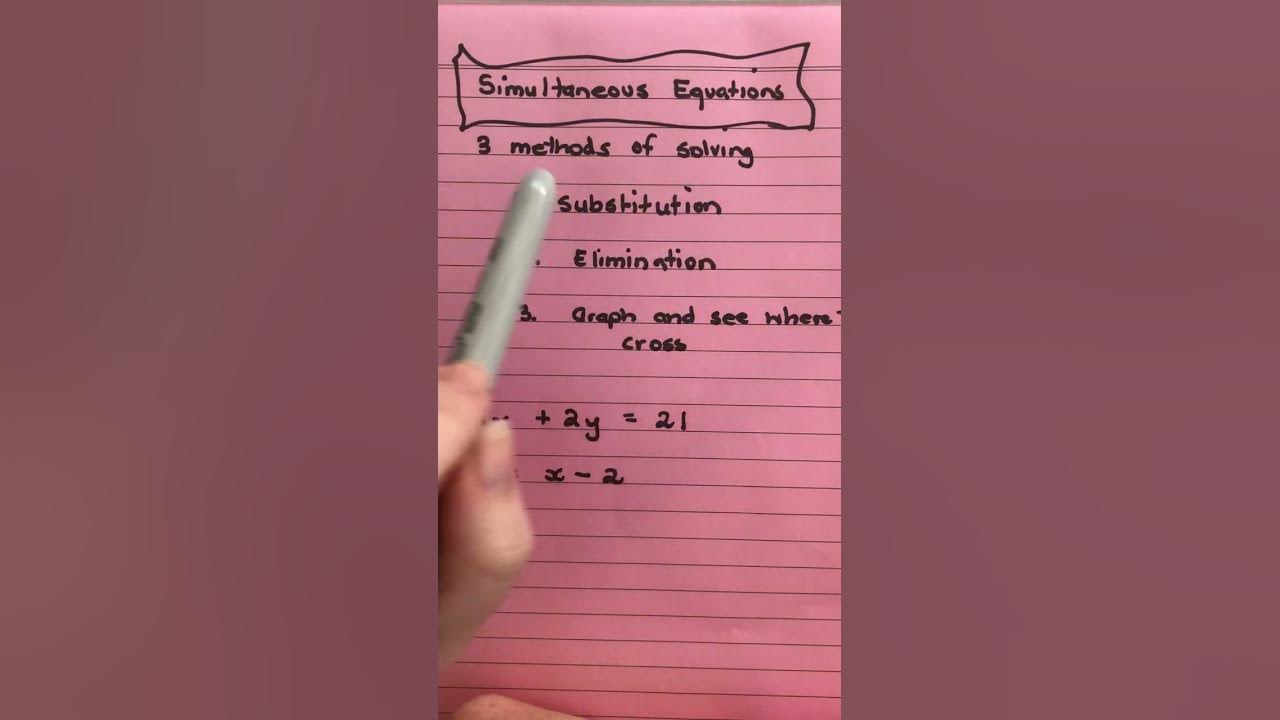 Simultaneous Equations
3 methods of solving
substitution
. Elimination
3. Graph and see where
cross
+ 2y = 21
x - 2